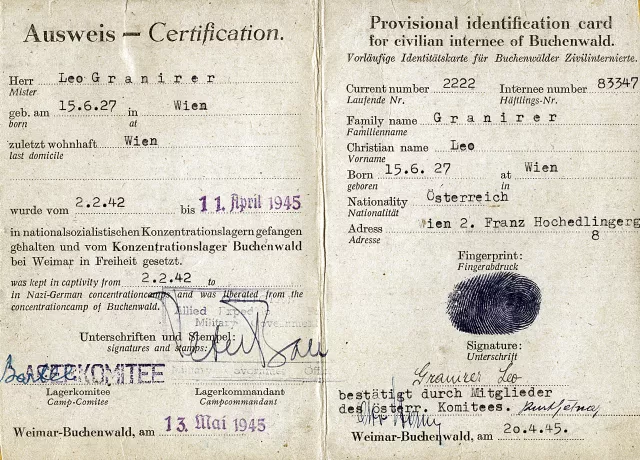 Ausweis — Certification.
Herr Leo Granirer
Mister
geb. am 15.6.27 in Wien
born at
zuletzt wohnhaft Wien
last domicile
wurde vom 2.2.42 bis 11. April 1945
in nationalsozialistischen Konzentrationslagern gefangen
gehalten und vom Konzentrationslager Buchenwald
bei Weimar in Freiheit gesetzt.
was kept in captivity from 2.2.42 to
in Nazi-German concentrationcamps and was liberated from the
concentrationcamp of Buchenwald.
Allied Exped
Military Government
Unterschriften und Stempel:
signatures and stamps:
LAGERKOMITEE
Lagerkomitee Lagerkommandant
Camp-Comitee Campcommandant
Weimar-Buchenwald, am 13. Mai 1945
Provisional identification card
for civilian internee of Buchenwald.
Vorläufige Identitätskarte für Buchenwälder Zivilinternierte.
Current number 2222 Internee number 83347
Laufende Nr. Häftlings-Nr.
Family name Granirer
Familienname
Christian name Leo
Vorname
Born 15.6. 27 at Wien
geboren in
Nationality Österreich
Nationalität
Adress Wien 2. Franz Hochedlingerg
Adresse 8
Fingerprint:
Fingerabdruck
Signature:
Unterschrift
Granirer Leo
bestätigt durch Mitglieder
des österr. Komitees.
Weimar-Buchenwald, am 20.4.45.